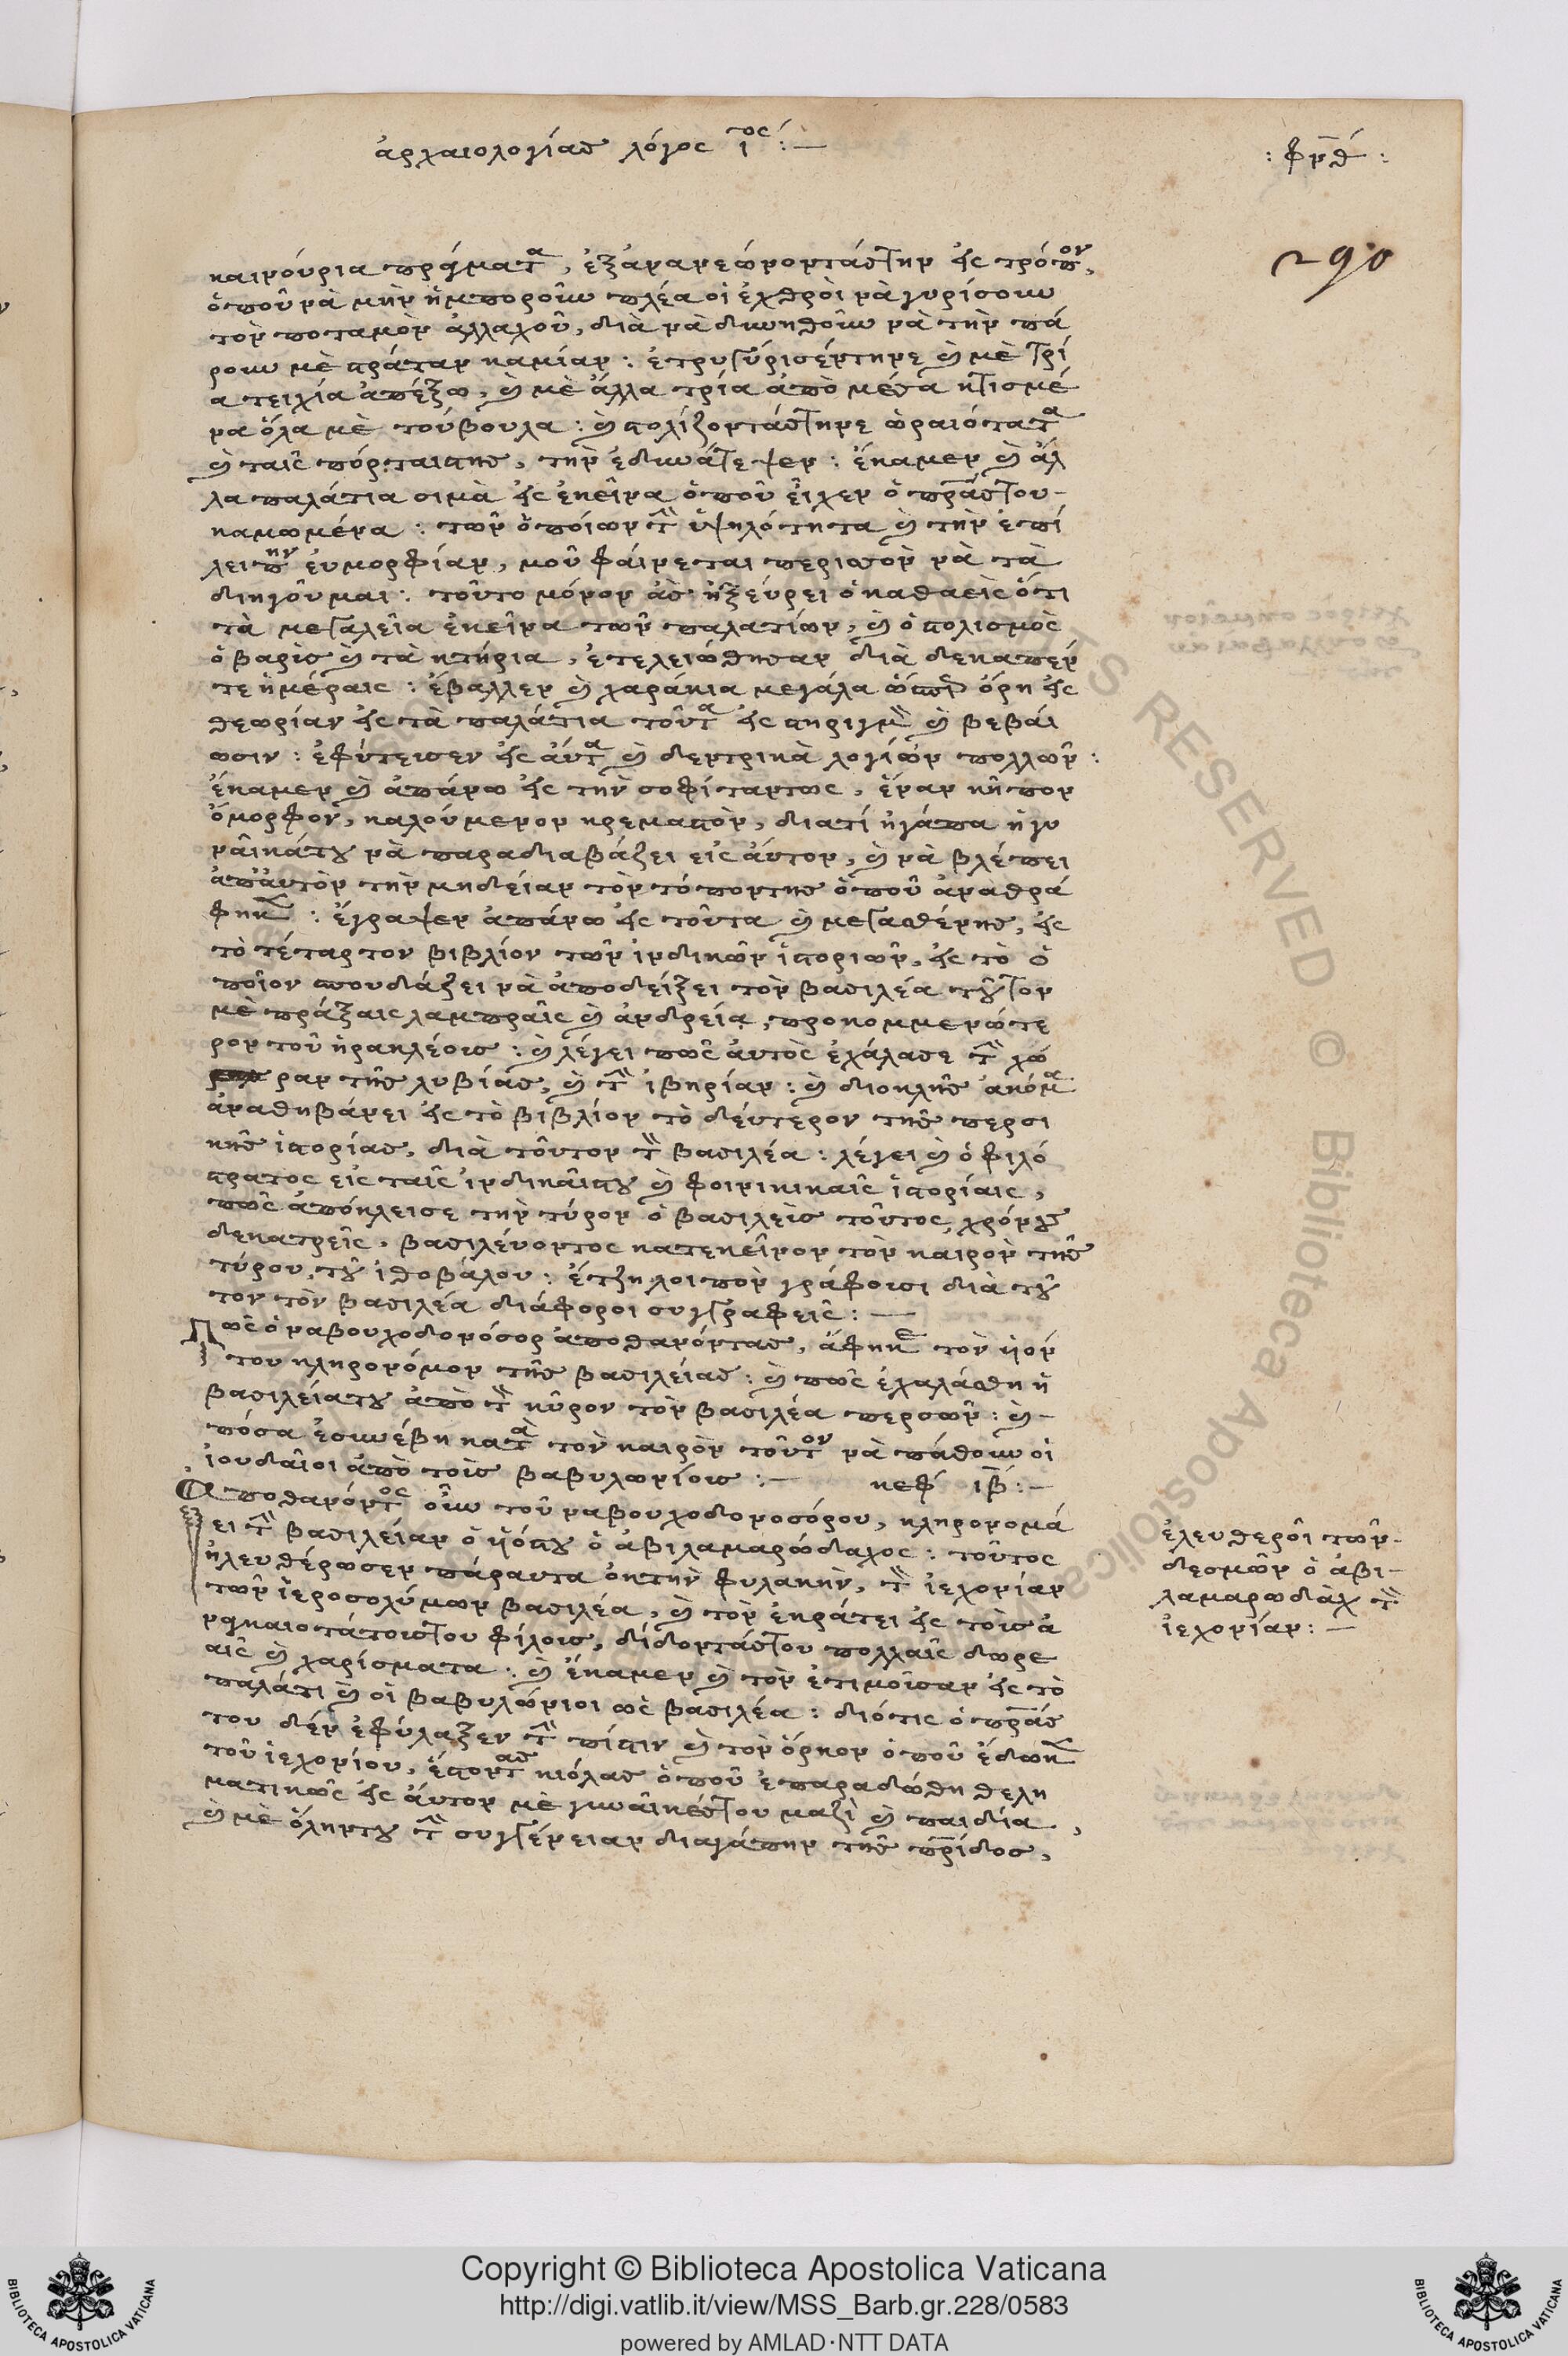 ἀρχαιολογίας λόγος ι^ος :—
: φπθ :
290
καινούρια πράγματα, ἐξανανεώνοντάς την εἰς τρόπον,
ὁποῦ νὰ μὴν ἠμποροῦν πλέα οἱ ἐχθροὶ νὰ γυρίσουν
τὸν ποταμὸν ἀλλαχοῦ, διὰ νὰ δυνηθοῦν νὰ τὴν πά
ρουν μὲ στράταν καμίαν : ἐτρυγύρισέν τηνε καὶ μὲ τρί
α τειχία ἀπέξω, καὶ μὲ ἄλλα τρία ἀπὸ μέσα κτισμέ
να ὅλα μὲ τούβουλα : καὶ στολίζοντάς τηνε ὡραιότατα
καὶ ταῖς πόρταις της, τὴν ἐδυνάτεψεν : ἔκαμεν καὶ ἄλ
λα παλάτια σιμὰ εἰς ἐκεῖνα ὁποῦ εἶχεν ὁ πρ̅άς του
καμωμένα : τῶν ὁποίων τὴν ὑψηλότητα καὶ τὴν ἐπί
λειπην εὐμορφίαν, μοῦ φαίνεται περισσὸν νὰ τὰ
διηγοῦμαι : τοῦτο μόνον ἂς ἠξεύρει ὁ καθαεὶς ὅτι
τὰ μεγαλεῖα ἐκεῖνα τῶν παλατίων, καὶ ὁ στολισμὸς
ὁ βαρὺς καὶ τὰ κτήρια, ἐτελειώθησαν διὰ δεκαπέν
τε ἡμέραις : ἔβαλλεν καὶ χαράκια μεγάλα ὡσὰν ὄρη εἰς
θεωρίαν εἰς τὰ παλάτια τοῦτα εἰς στηριγμὸν καὶ βεβαί
ωσιν : ἐφύτευσεν εἰς αὐτὰ καὶ δεντρικὰ λογιῶν πολλῶν :
ἔκαμεν καὶ ἀπάνω εἰς τὴν σοφίταν τως, ἕναν κῆπον
ὄμορφον, καλούμενον κρεμαστὸν, διατί ἠγάπα ἡ γυ
ναῖκά του νὰ παραδιαβάζει εἰς αὐτον, καὶ νὰ βλέπει
ἀπ' αὐτὸν τὴν μηδείαν τὸν τόπον της ὁποῦ ἀναθρά
φηκε : ἔγραψεν ἀπάνω εἰς τοῦτα καὶ μεγασθένης, εἰς
τὸ τέταρτον βιβλίον τῶν ἰνδικῶν ἱστοριῶν, εἰς τὸ ὁ
ποῖον σπουδάζει νὰ ἀποδείξει τὸν βασιλέα τοῦτον
μὲ πράξαις λαμπραῖς καὶ ἀνδρεία, προκομμενώτε
ρον τοῦ ἡρακλέους : καὶ λέγει πῶς αὐτὸς ἐχάλασε τὴν χώ
ραν τῆς λυβίας, καὶ τὴν ἰβηρίαν : καὶ διοκλῆς ἀκόμα
ἀναθηβάνει εἰς τὸ βιβλίον τὸ δεύτερον τῆς περσι
κῆς ἱστορίας, διὰ τοῦτον τὸν βασιλέα : λέγει καὶ ὁ φιλό
στρατος εἰς ταῖς ἰνδικαῖς του καὶ φοινικικαῖς ἱστορίαις,
πῶς ἀπόκλεισε τὴν τύρον ὁ βασιλεὺς τοῦτος, χρόνους
δεκατρεῖς, βασιλεύοντος κατεκεῖνον τὸν καιρὸν τῆς
τύρου, τοῦ ἰθοβάλου : ἔτζη λοιπὸν γράφουσι διὰ τοῦ
τον τὸν βασιλέα διάφοροι συγγραφεῖς : —
Πῶς ὁ ναβουχοδονόσορ ἀποθανόντας, ἄφηκε τὸν ὑιόν
του κληρονόμον τῆς βασιλείας : καὶ πῶς ἐχαλάσθη ἡ
βασιλεία του ἀπὸ τὸν κῦρον τὸν βασιλέα περσῶν : καὶ
πόσα ἐσυνέβη κατὰ τὸν καιρὸν τοῦτον νὰ πάθουν οἱ
ἰουδαῖοι ἀπὸ τοὺς βαβυλωνίους :— κεφ ιβ :—
Αποθανόντος οὖν τοῦ ναβουχοδονοσόρου, κληρονομά
ει τὴν βασιλείαν ὁ ὑιός του ὁ ἀβιλαμαρώδαχος : τοῦτος
ἠλευθέρωσεν πάραυτα ἐκ τὴν φυλακὴν, τὸν ἰεχονίαν
τῶν ἱεροσολύμων βασιλέα, καὶ τὸν ἐκράτει εἰς τοὺς ἀ
ναγκαιοτάτους του φίλους, δίδοντάς του πολλαῖς δωρε
αῖς καὶ χαρίσματα : καὶ ἔκαμεν καὶ τὸν ἐτιμοῦσαν εἰς τὸ
παλάτι καὶ οἱ βαβυλώνιοι ὡς βασιλέα : διότις ὁ πρ̅άς
του δὲν ἐφύλαξεν τὴν πίστιν καὶ τὸν ὅρκον ὁποῦ ἔδωκε
τοῦ ἰεχονίου, ἔστοντας κιόλας ὁποῦ ἐπαραδώθη θελη
ματικῶς εἰς αὐτον μὲ γυναῖκές του μαζὶ καὶ παιδία,
καὶ μὲ ὅλην του τὴν συγγένειαν διαγάπην τῆς πρ̅ίδος,
ἐλευθεροῖ τῶν
δεσμῶν ὁ ἀβι-
λαμαρωδὰχ τὸν
ἰεχονίαν : —
Copyright © Biblioteca Apostolica Vaticana
http://digi.vatlib.it/view/MSS_Barb.gr.228/0583
powered by AMLAD·NTT DATA
BIBLIOTECA APOSTOLICA VATICANA
BIBLIOTECA APOSTOLICA VATICANA